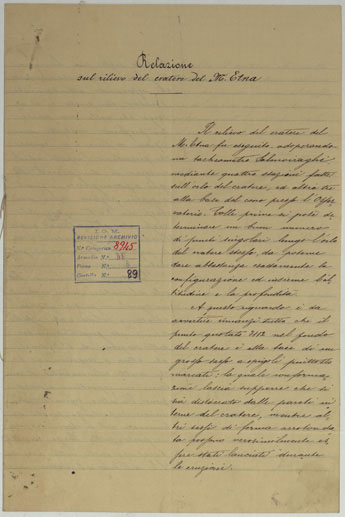 Relazione
sul rilievo del cratere del M. Etna
Il rilievo del cratere del
M. Etna fu eseguito adoperando
un tacheometro Salmoiraghi
mediante quattro stazioni fatte
sull'orlo del cratere, ed altre tre
alla base del cono presso l'Osser
vatorio. Colle prime si poté de
terminare un buon numero
di punti singolari lungo l'orlo
del cratere stesso da poterne
dare abbastanza esattamente la
configurazione ed insieme l'al
titudine e la profondità.
A questo riguardo è da
avvertire innanzi tutto che il
punto quotato 3112 nel fondo
del cratere è alla base di un
grosso sasso a spigoli piuttosto
marcati: la quale conforma
zione lascia supporre che si
sia distaccato dalle pareti in
terne del cratere, mentre al
tri sassi di forma arrotonda
ta proprio verosimilmente es
sere stati lanciati durante
le eruzioni.
I. G. M.
REVISIONE ARCHIVIO
N° Categorico 8945
Armadio N°
Piano N°
Cartella N° 89